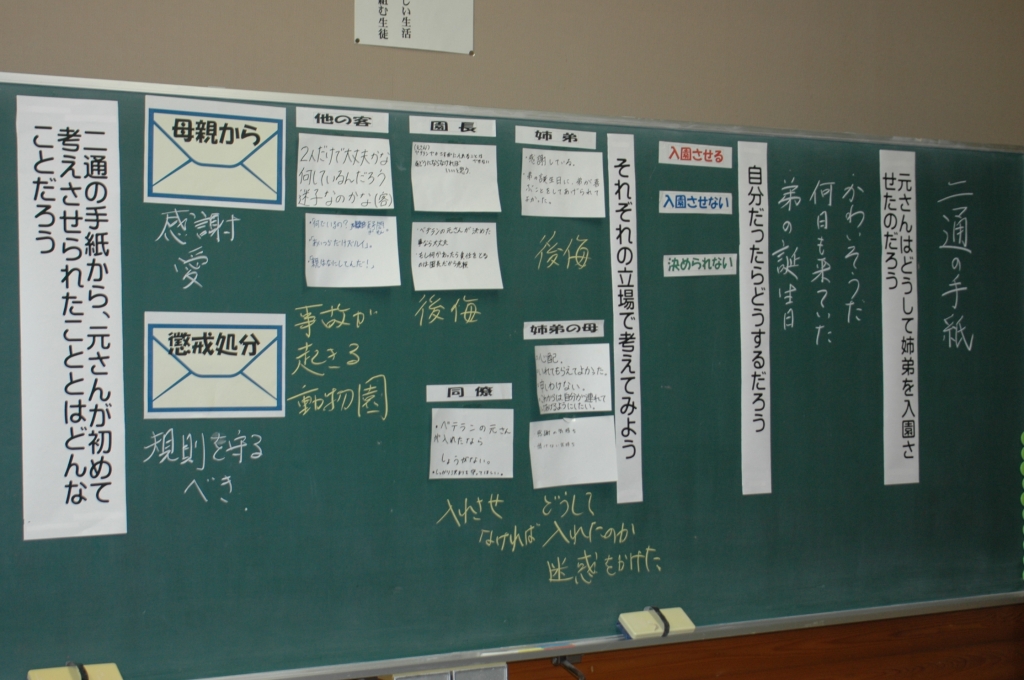 しい生活
組む生徒
二通の手紙
元さんはどうして姉弟を入園さ
せたのだろう
かわいそうだ
何日も来ていた
弟の誕生日
自分だったらどうするだろう
入園させる
入園させない
決められない
それぞれの立場で考えてみよう
姉弟
・感謝している。
後悔
姉弟の母
・心配。
いれてもらえてよかった。
どうして
入れたのか
迷惑をかけた
園長
ベテランの元さんが決めた
なら大丈夫
後悔
同僚
・ベテランの元さん
が入れたなら
しょうがない。
入れさせ
なければ
他の客
2人だけで大丈夫かな
何しているんだろう
迷子なのかな(客)
事故が
起きる
動物園
母親から
感謝
愛
懲戒処分
規則を守る
べき.
二通の手紙から、元さんが初めて
考えさせられたこととはどんな
ことだろう